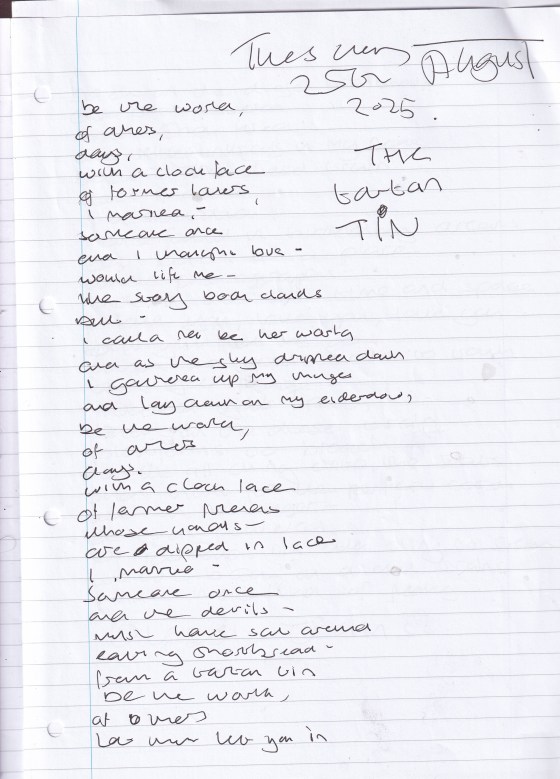 Tuesday
25th August
2025.
THE
tartan
TIN
be the world,
of others,
days,
with a clock face
of former lovers,
I married,-
someone once
and I thought love -
would lift me -
like story book clouds
but -
I could not be her world
and as the sky dripped down
I gathered up my things
and lay down on my eiderdown,
be the world,
of others
days.
with a clock face
of former friends
whose hands -
are dipped in lace
I married -
someone once
and the devils -
must have sat around
eating shortbread -
from a tartan tin
be the world,
of others
let you in